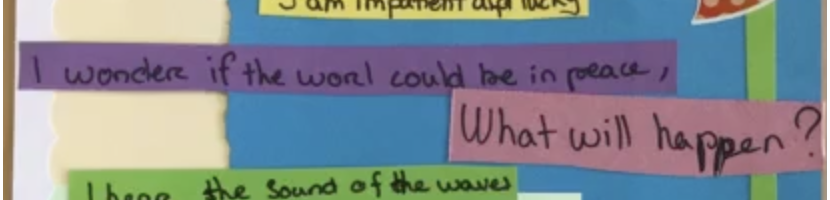 I am impatient and lucky
I wonder if the worl could be in peace,
What will happen?
I hear the sound of the waves